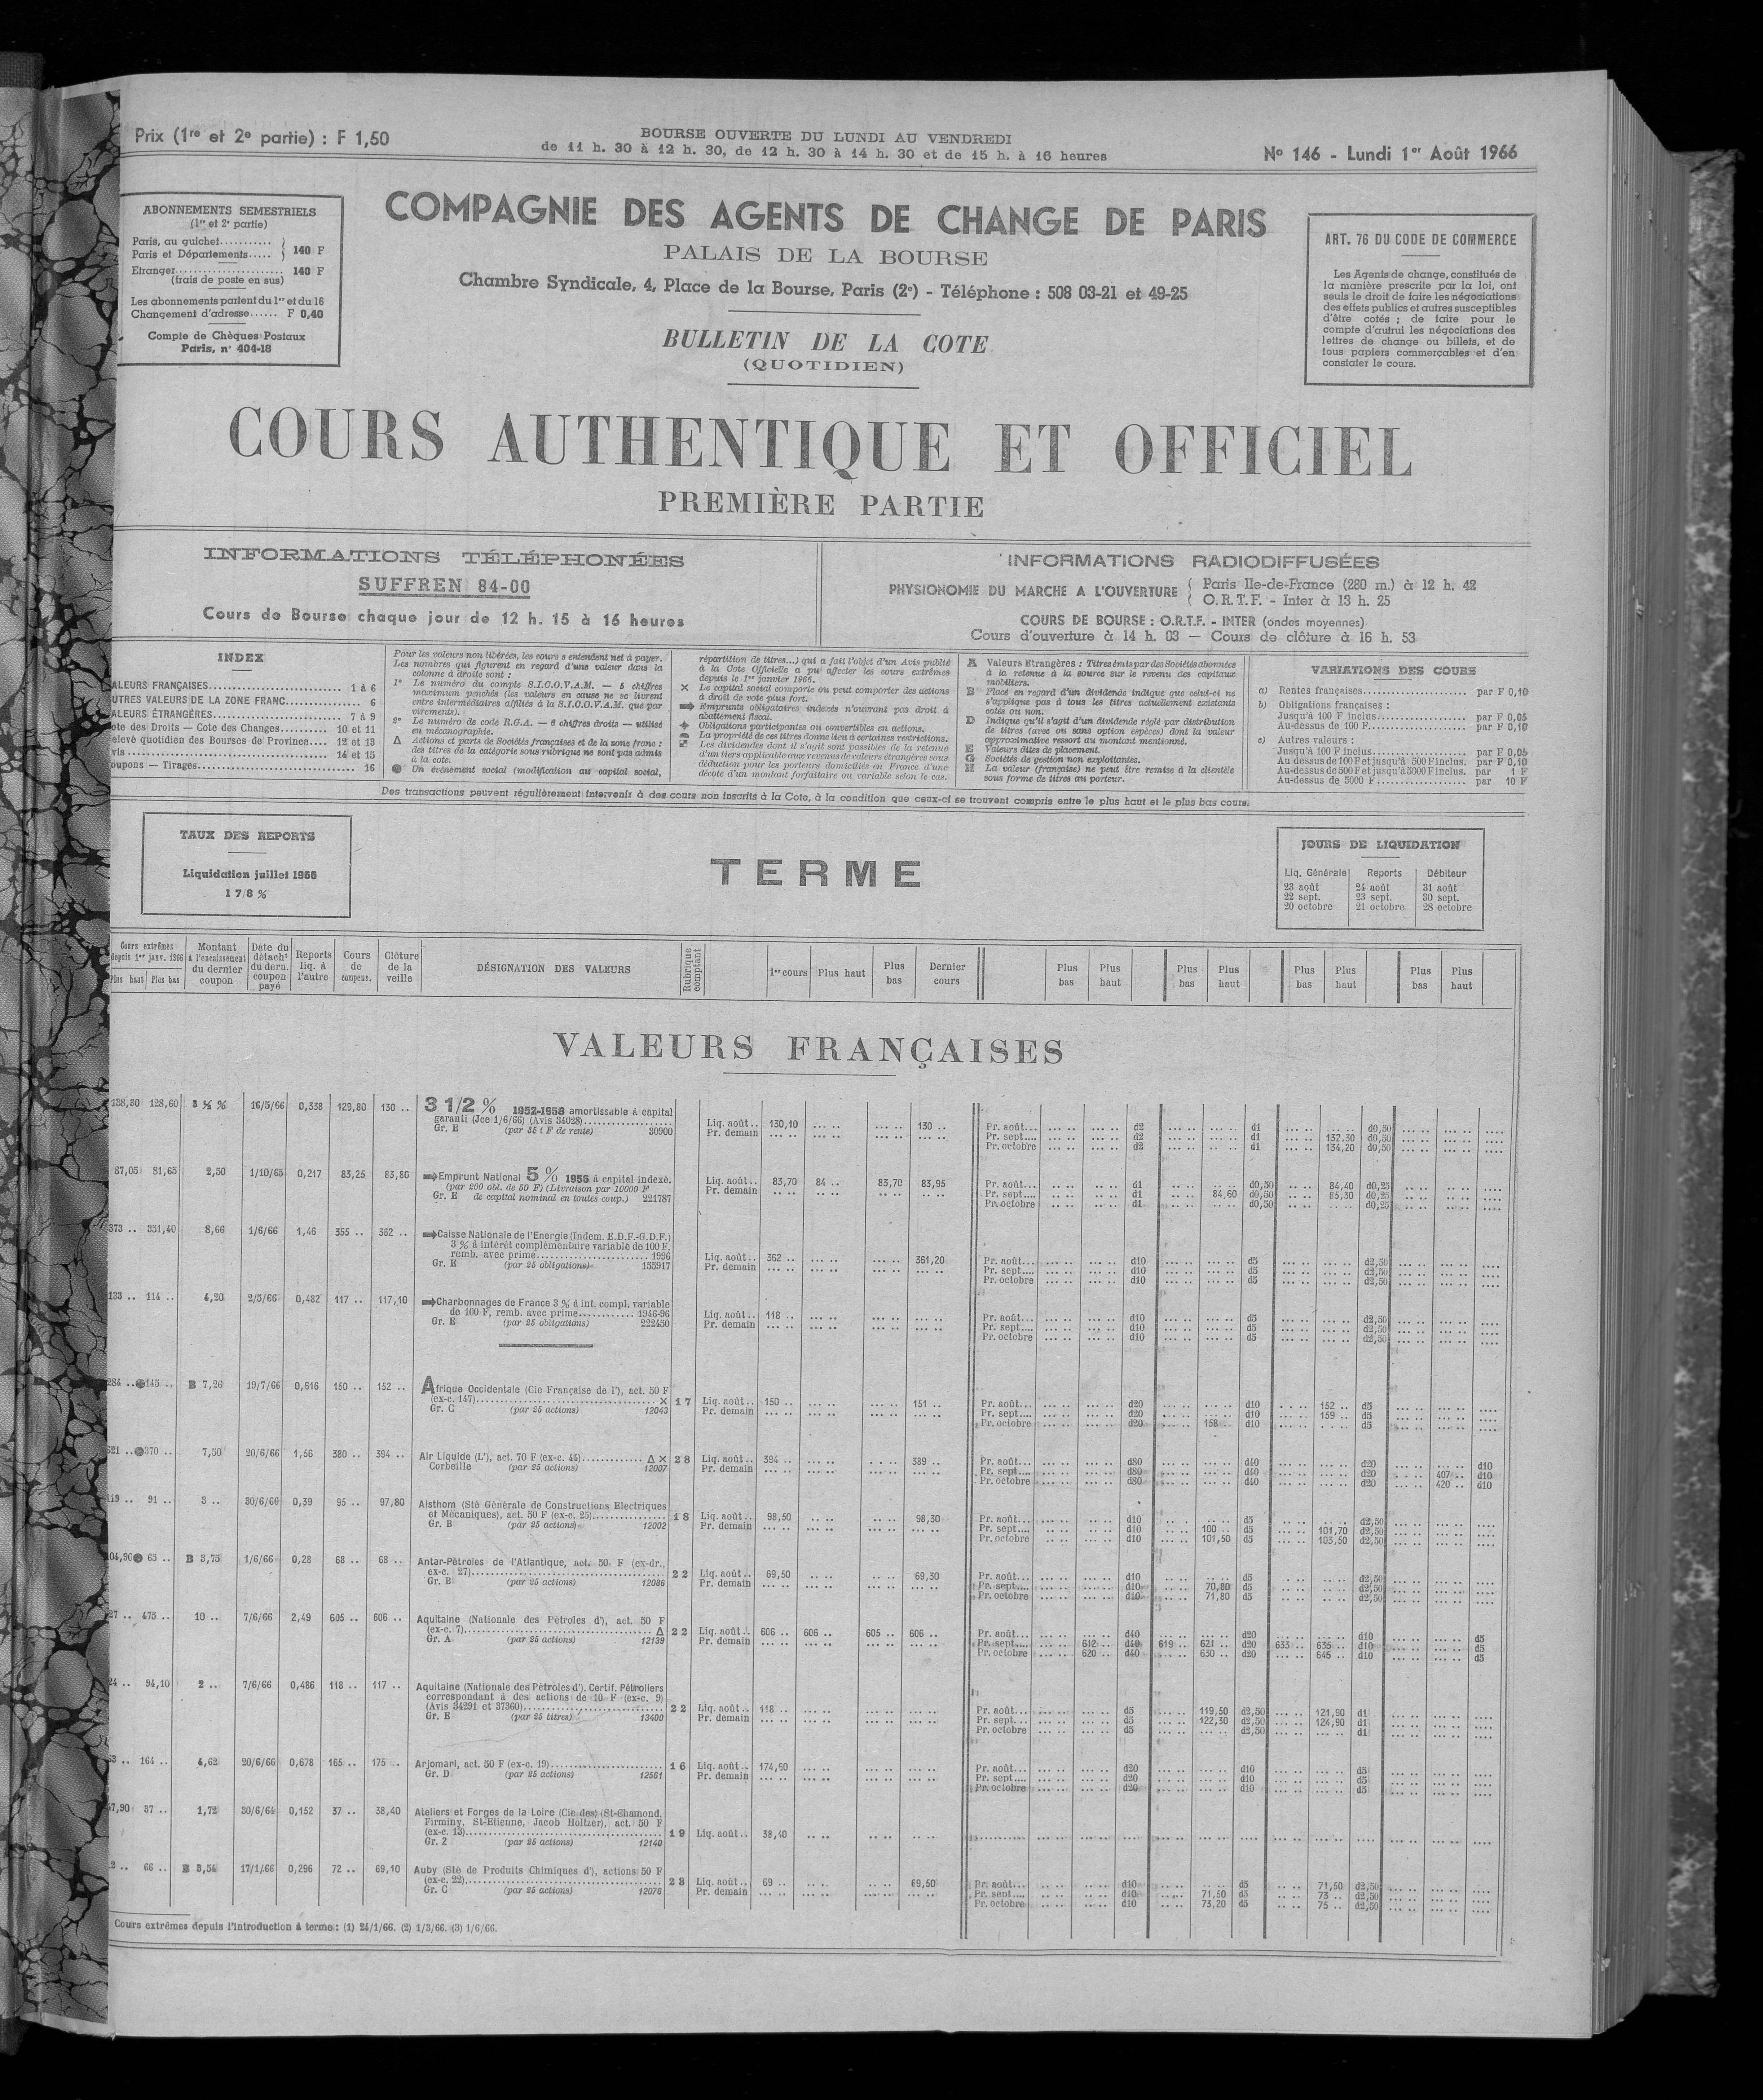 Prix (1re et 2e partie) : F 1,50
BOURSE OUVERTE DU LUNDI AU VENDREDI
de 11 h. 30 à 12 h. 30, de 12 h. 30 à 14 h. 30 et de 15 h. à 16 heures
No 146 - Lundi 1er Août 1966
ABONNEMENTS SEMESTRIELS
(1re et 2e partie)
Paris, au guichet...........
Paris et Départements..... } 140 F
Etranger...................... 140 F
(frais de poste en sus)
Les abonnements partent du 1er et du 16
Changement d'adresse...... F 0,40
Compte de Chèques Postaux
Paris, n° 404-18
COMPAGNIE DES AGENTS DE CHANGE DE PARIS
PALAIS DE LA BOURSE
Chambre Syndicale, 4, Place de la Bourse, Paris (2e) - Téléphone : 508 03-21 et 49-25
BULLETIN DE LA COTE
(QUOTIDIEN)
ART. 76 DU CODE DE COMMERCE
Les Agents de change, constitués de
la manière prescrite par la loi, ont
seuls le droit de faire les négociations
des effets publics et autres susceptibles
d'être cotés ; de faire pour le
compte d'autrui les négociations des
lettres de change ou billets, et de
tous papiers commerçables et d'en
constater le cours.
COURS AUTHENTIQUE ET OFFICIEL
PREMIÈRE PARTIE
INFORMATIONS TÉLÉPHONÉES
SUFFREN 84-00
Cours de Bourse chaque jour de 12 h. 15 à 16 heures
INFORMATIONS RADIODIFFUSÉES
PHYSIONOMIE DU MARCHE A L'OUVERTURE { Paris Ile-de-France (280 m.) à 12 h. 42
O.R.T.F. - Inter à 13 h. 25
COURS DE BOURSE : O.R.T.F. - INTER (ondes moyennes)
Cours d'ouverture à 14 h. 03 — Cours de clôture à 16 h. 53
INDEX
ALEURS FRANÇAISES........ 1 à 6
UTRES VALEURS DE LA ZONE FRANC........ 6
ALEURS ÉTRANGÈRES........ 7 à 9
ote des Droits — Cote des Changes........ 10 et 11
elevé quotidien des Bourses de Province.... 12 et 13
vis........ 14 et 15
oupons — Tirages........ 16
Pour les valeurs non libérées, les cours s'entendent net à payer.
Les nombres qui figurent en regard d'une valeur dans la
colonne à droite sont :
1° Le numéro du compte S.I.C.O.V.A.M. — 5 chiffres
maximum penchés (les valeurs en cause ne se livrent
entre intermédiaires affiliés à la S.I.C.O.V.A.M. que par
virements).
2° Le numéro de code R.G.A. — 6 chiffres droits — utilisé
en mécanographie.
Δ Actions et parts de Sociétés françaises et de la zone franc :
des titres de la catégorie sous rubrique ne sont pas admis
à la cote.
● Un événement social (modification au capital social,
répartition de titres...) qui a fait l'objet d'un Avis publié
à la Cote Officielle a pu affecter les cours extrêmes
depuis le 1er janvier 1966.
× Le capital social comporte ou peut comporter des actions
à droit de vote plus fort.
➡ Emprunts obligataires indexés n'ouvrant pas droit à
abattement fiscal.
Obligations participantes ou convertibles en actions.
La propriété de ces titres donne lieu à certaines restrictions.
Les dividendes dont il s'agit sont passibles de la retenue
d'un tiers applicable aux revenus de valeurs étrangères sous
déduction pour les porteurs domiciliés en France d'une
décote d'un montant forfaitaire ou variable selon le cas.
A Valeurs Etrangères : Titres émis par des Sociétés abonnées
à la retenue à la source sur le revenu des capitaux
mobiliers.
B Placé en regard d'un dividende indique que celui-ci ne
s'applique pas à tous les titres actuellement existants
cotés ou non.
D Indique qu'il s'agit d'un dividende réglé par distribution
de titres (avec ou sans option espèces) dont la valeur
approximative ressort au montant mentionné.
E Valeurs dites de placement.
G Sociétés de gestion non exploitantes.
H La valeur (française) ne peut être remise à la clientèle
sous forme de titres au porteur.
VARIATIONS DES COURS
a) Rentes françaises........ par F 0,10
b) Obligations françaises :
Jusqu'à 100 F inclus........ par F 0,05
Au-dessus de 100 F........ par F 0,10
c) Autres valeurs :
Jusqu'à 100 F inclus........ par F 0,05
Au dessus de 100 F et jusqu'à 500 F inclus. par F 0,10
Au-dessus de 500 F et jusqu'à 5000 F inclus. par 1 F
Au-dessus de 5000 F........ par 10 F
Des transactions peuvent régulièrement intervenir à des cours non inscrits à la Cote, à la condition que ceux-ci se trouvent compris entre le plus haut et le plus bas cours.
TAUX DES REPORTS
Liquidation juillet 1966
1 7/8 %
TERME
JOURS DE LIQUIDATION
Liq. Générale Reports Débiteur
23 août 24 août 31 août
22 sept. 23 sept. 30 sept.
20 octobre 21 octobre 28 octobre
Cours extrêmes depuis 1er janv. 1966 Plus haut Plus bas
Montant à l'encaissement du dernier coupon
Date du détacht du dern. coupon payé
Reports liq. à l'autre
Cours de compens.
Clôture de la veille
DÉSIGNATION DES VALEURS
Rubrique comptant
1er cours Plus haut Plus bas Dernier cours
Plus bas Plus haut Plus bas Plus haut Plus bas Plus haut Plus bas Plus haut
VALEURS FRANÇAISES
138,30 128,60 3 ½ % 16/5/66 0,338 129,80 130 .. 3 1/2 % 1952-1958 amortissable à capital
garanti (Jce 1/6/66) (Avis 34028)........
Gr. E (par 35 F de rente) 30900
Liq. août.. 130,10 ... .. ... .. 130 ..
Pr. demain
Pr. août... d2 d1 d0,50
Pr. sept.... d2 d1 132,30 d0,50
Pr. octobre d2 d1 134,20 d0,50
87,05 81,65 2,50 1/10/65 0,217 83,25 83,80 ➡Emprunt National 5 % 1956 à capital indexé.
(par 200 obl. de 50 F) (Livraison par 10000 F
Gr. E de capital nominal en toutes coup.) 221787
Liq. août.. 83,70 84 .. 83,70 83,95
Pr. demain
Pr. août... d1 d0,50 84,40 d0,25
Pr. sept.... d1 84,60 d0,50 85,30 d0,25
Pr. octobre d1 d0,50 d0,25
373 .. 351,40 8,66 1/6/66 1,46 355 .. 362 .. ➡Caisse Nationale de l'Energie (Indem. E.D.F.-G.D.F.)
3 % à intérêt complémentaire variable de 100 F,
remb. avec prime........ 1996
Gr. E (par 25 obligations) 155917
Liq. août.. 362 .. ... .. ... .. 361,20
Pr. demain
Pr. août... d10 d5 d2,50
Pr. sept.... d10 d5 d2,50
Pr. octobre d10 d5 d2,50
133 .. 114 .. 4,20 2/5/66 0,482 117 .. 117,10 ➡Charbonnages de France 3 % à int. compl. variable
de 100 F, remb. avec prime........ 1946-96
Gr. E (par 25 obligations) 222450
Liq. août.. 118 ..
Pr. demain
Pr. août... d10 d5 d2,50
Pr. sept.... d10 d5 d2,50
Pr. octobre d10 d5 d2,50
284 .. ●145 .. B 7,26 19/7/66 0,616 150 .. 152 .. Afrique Occidentale (Cie Française de l'), act. 50 F
(ex-c. 147)........ × 17
Gr. C (par 25 actions) 12043
Liq. août.. 150 .. ... .. ... .. 151 ..
Pr. demain
Pr. août... d20 d10 152 .. d5
Pr. sept.... d20 d10 159 .. d5
Pr. octobre d20 158 .. d10 d5
521 .. ●370 .. 7,50 20/6/66 1,56 380 .. 394 .. Air Liquide (L'), act. 70 F (ex-c. 44)........ Δ × 28
Corbeille (par 25 actions) 12007
Liq. août.. 394 .. ... .. ... .. 389 ..
Pr. demain
Pr. août... d80 d40 d20 d10
Pr. sept.... d80 d40 d20 407 .. d10
Pr. octobre d80 d40 d20 420 .. d10
119 .. 91 .. 3 .. 30/6/66 0,39 95 .. 97,80 Alsthom (Sté Générale de Constructions Electriques
et Mécaniques), act. 50 F (ex-c. 25)........ 18
Gr. B (par 25 actions) 12002
Liq. août.. 98,50 .. .. .. .. 98,30
Pr. demain
Pr. août... d10 d5 d2,50
Pr. sept.... d10 100 .. d5 101,70 d2,50
Pr. octobre d10 101,50 d5 103,50 d2,50
104,90● 65 .. B 3,75 1/6/66 0,28 68 .. 68 .. Antar-Pétroles de l'Atlantique, act. 50 F (ex-dr.,
ex-c. 27)........ 22
Gr. B (par 25 actions) 12086
Liq. août.. 69,50 .. .. .. .. 69,30
Pr. demain
Pr. août... d10 d5 d2,50
Pr. sept.... d10 70,80 d5 d2,50
Pr. octobre d10 71,80 d5 d2,50
27 .. 475 .. 10 .. 7/6/66 2,49 605 .. 606 .. Aquitaine (Nationale des Pétroles d'), act. 50 F
(ex-c. 7)........ Δ 22
Gr. A (par 25 actions) 12139
Liq. août.. 606 .. 606 .. 605 .. 606 ..
Pr. demain
Pr. août... d40 d20 d10 d5
Pr. sept.... 612 .. d40 619 .. 621 .. d20 633 .. 635 .. d10 d5
Pr. octobre 620 .. d40 630 .. d20 645 .. d10 d5
24 .. 94,10 2 .. 7/6/66 0,486 118 .. 117 .. Aquitaine (Nationale des Pétroles d'). Certif. Pétroliers
correspondant à des actions de 10 F (ex-c. 9)
(Avis 34291 et 37360)........ 22
Gr. E (par 25 titres) 13400
Liq. août.. 118 ..
Pr. demain
Pr. août... d5 119,50 d2,50 121,90 d1
Pr. sept.... d5 122,30 d2,50 124,90 d1
Pr. octobre d5 d2,50 d1
3 .. 164 .. 4,62 20/6/66 0,678 165 .. 175 .. Arjomari, act. 50 F (ex-c. 19)........ 16
Gr. D (par 25 actions) 12581
Liq. août.. 174,90
Pr. demain
Pr. août... d20 d10 d5
Pr. sept.... d20 d10 d5
Pr. octobre d20 d10 d5
7,90 37 .. 1,72 30/6/64 0,152 37 .. 38,40 Ateliers et Forges de la Loire (Cie des) (St-Chamond,
Firminy, St-Etienne, Jacob Holtzer), act. 50 F
(ex-c. 13)........ 19
Gr. 2 (par 25 actions) 12140
Liq. août.. 38,40
2 .. 66 .. B 3,54 17/1/66 0,296 72 .. 69,10 Auby (Sté de Produits Chimiques d'), actions 50 F
(ex-c. 22)........ 23
Gr. C (par 25 actions) 12076
Liq. août.. 69 .. .. .. .. .. 69,50
Pr. demain
Pr. août... d10 d5 71,50 d2,50
Pr. sept.... d10 71,50 d5 73 .. d2,50
Pr. octobre d10 73,20 d5 75 .. d2,50
Cours extrêmes depuis l'introduction à terme : (1) 24/1/66. (2) 1/3/66. (3) 1/6/66.